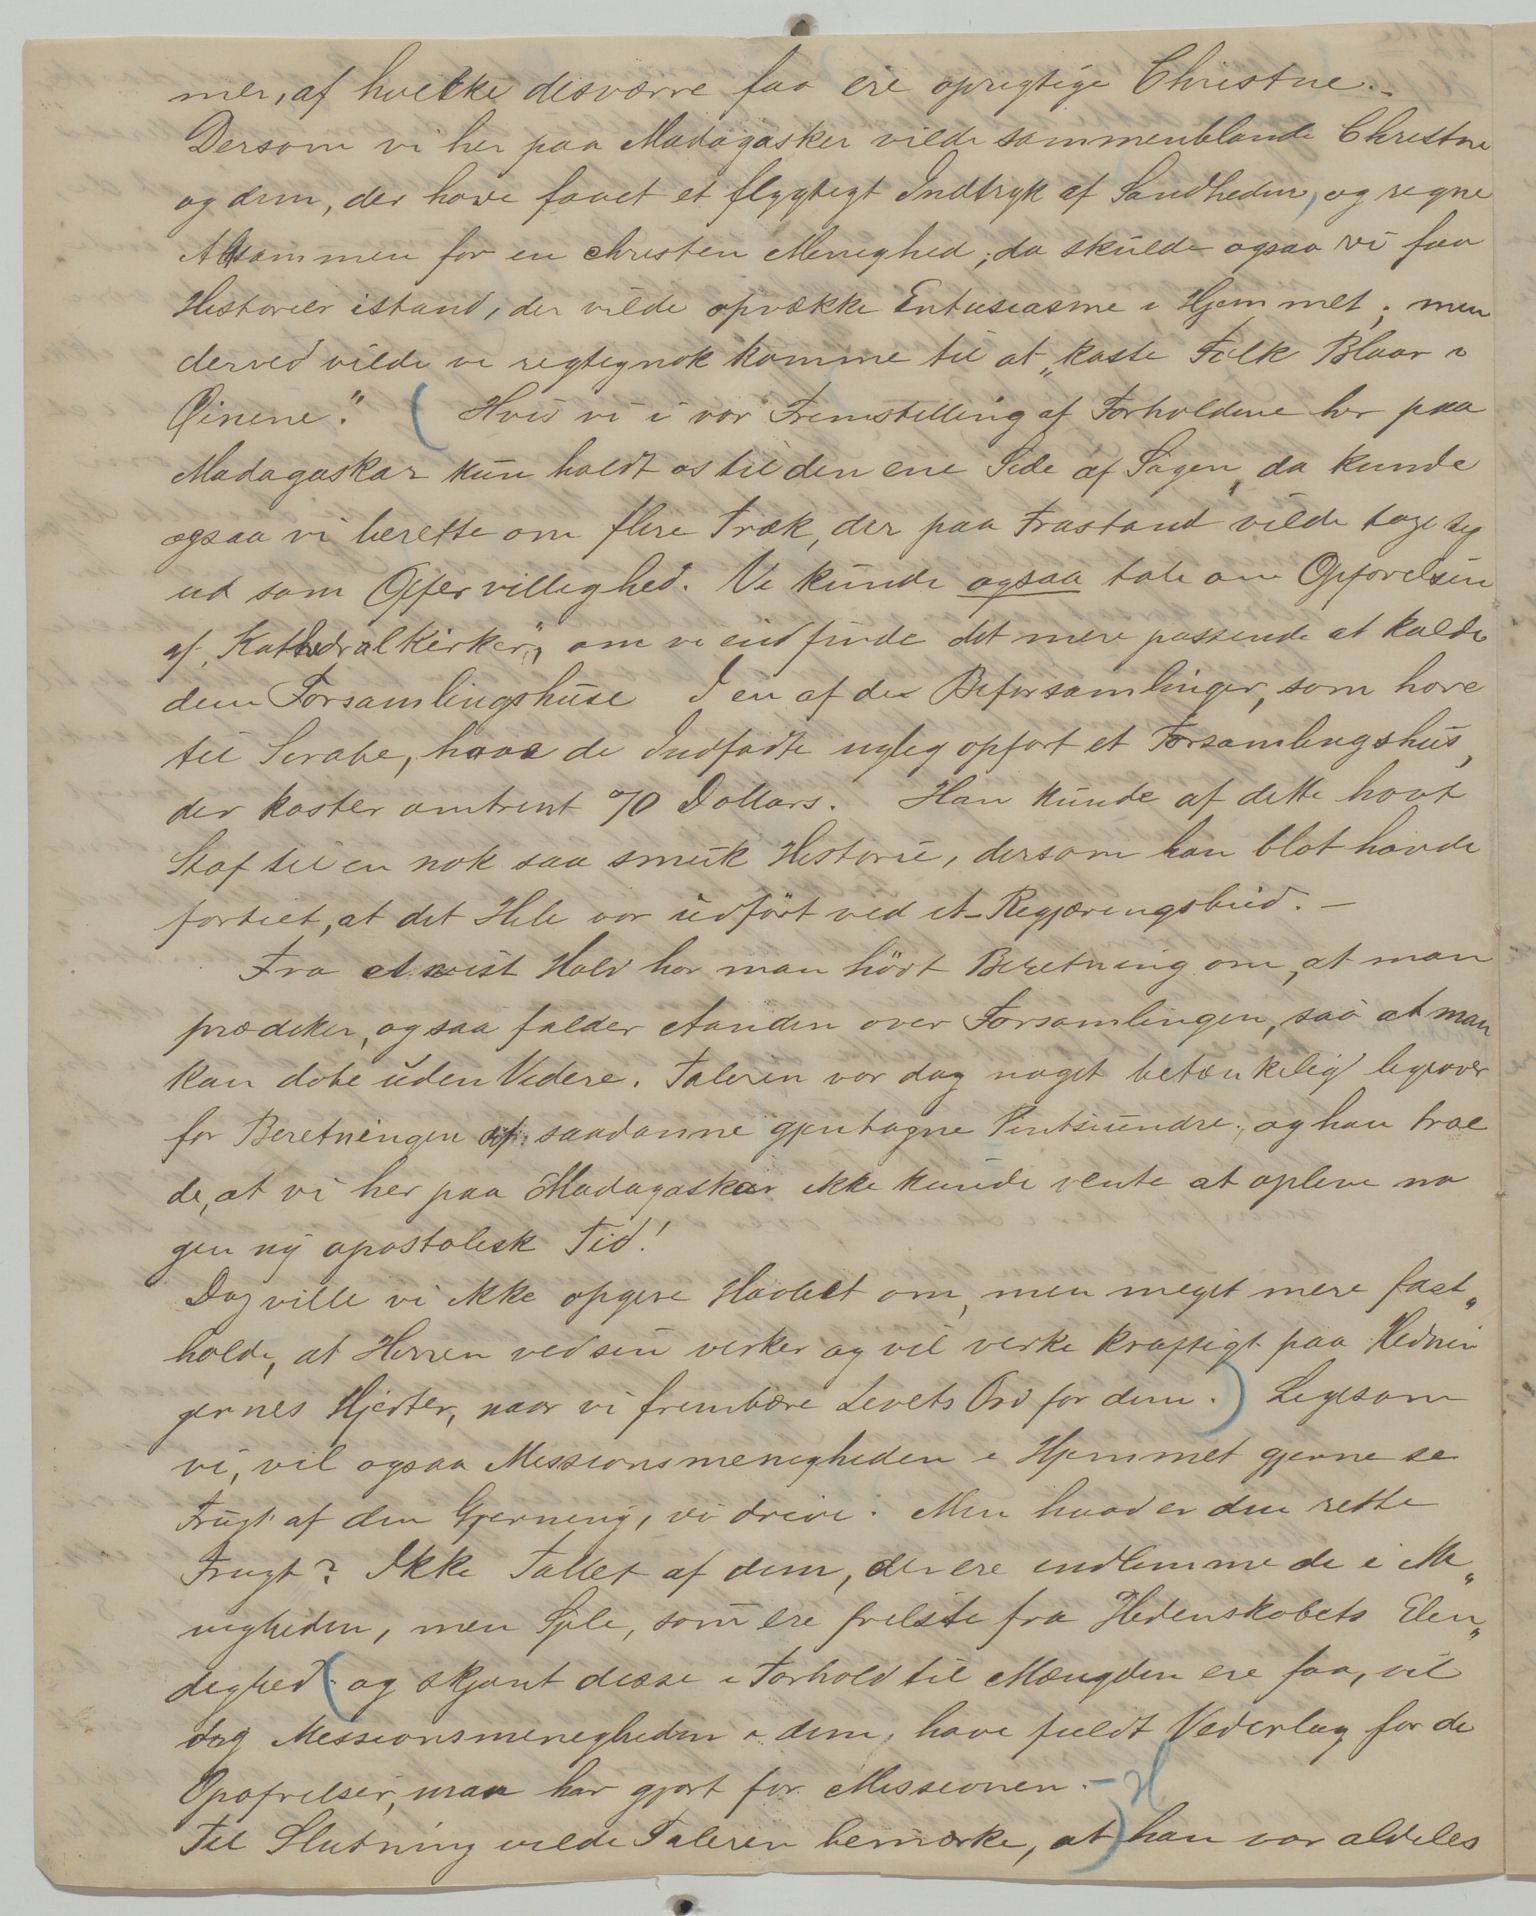 mer, af hvilke desværre faa ere oprigtige Christne.-
Dersom vi her paa Madagasker vilde sammenblande Christne
og dem, der have faaet et flygtigt Indtryk af Sandheden, og regne
Altsammen for en christen Menighed, da skulde ogsaa vi faa
Historier istand, der vilde opvække Entusiasme i Hjemmet; men
derved vilde vi rigtignok komme til at „kaste Folk Blaar i
Øinene". ( Hvis vi i vor Fremstilling af Forholdene her paa
Madagaskar kun holdt os til den ene Side af Sagen, da kunde
ogsaa vi berette om flere Træk, der paa Frastand vilde tage sig
ud som Offervillighed. Vi kunde ogsaa tale om Opførelsen
af „Kathedralkirker", om vi end finde det mere passende at kalde
dem Forsamlingshuse I en af de Biforsamlinger, som høre
til Sirabe, have de Indfødte nylig opført et Forsamlingshus,
der koster omtrent 70 Dollars. Han kunde af dette havt
Stof til en nok saa smuk Historie, dersom han blot havde
fortiet, at det Hele var udført ved et Regjæringsbud. -
Fra et vist Hold har man hört Beretning om, at man
prædiker, og saa falder Aanden over Forsamlingen, saa at man
kan døbe uden Videre. Taleren var dog noget betænkelig ligeover
for Beretningen af saadanne gjentagne Pintseundre; og han troe
de, at vi her paa Madagaskar ikke kunde vente at opleve no
gen ny apostolisk Tid!
Dog ville vi ikke opgive Haabet om, men meget mere fast„
holde, at Herren ved sin virker og vil virke kraftigt paa Hednin
gernes Hjerter, naar vi frembære Livets Ord for dem.) Ligesom
vi, vil ogsaa Missionsmenigheden i Hjemmet gjerne se
Frugt af den Gjerning, vi drive. Men hvad er den rette
Frugt? Ikke Tallet af dem, der ere indlemmede i Me„
nigheden, men Sjele, som ere frelste fra Hedenskabets Elen„
dighed (og skjønt disse i Forhold til Mængden ere faa, vil
dog Missionsmenigheden i dem, have fuldt Vederlag for de
Opofrelser, man har gjort for Missionen. -
Til Slutning vilde Taleren bemærke, at) han var aldeles